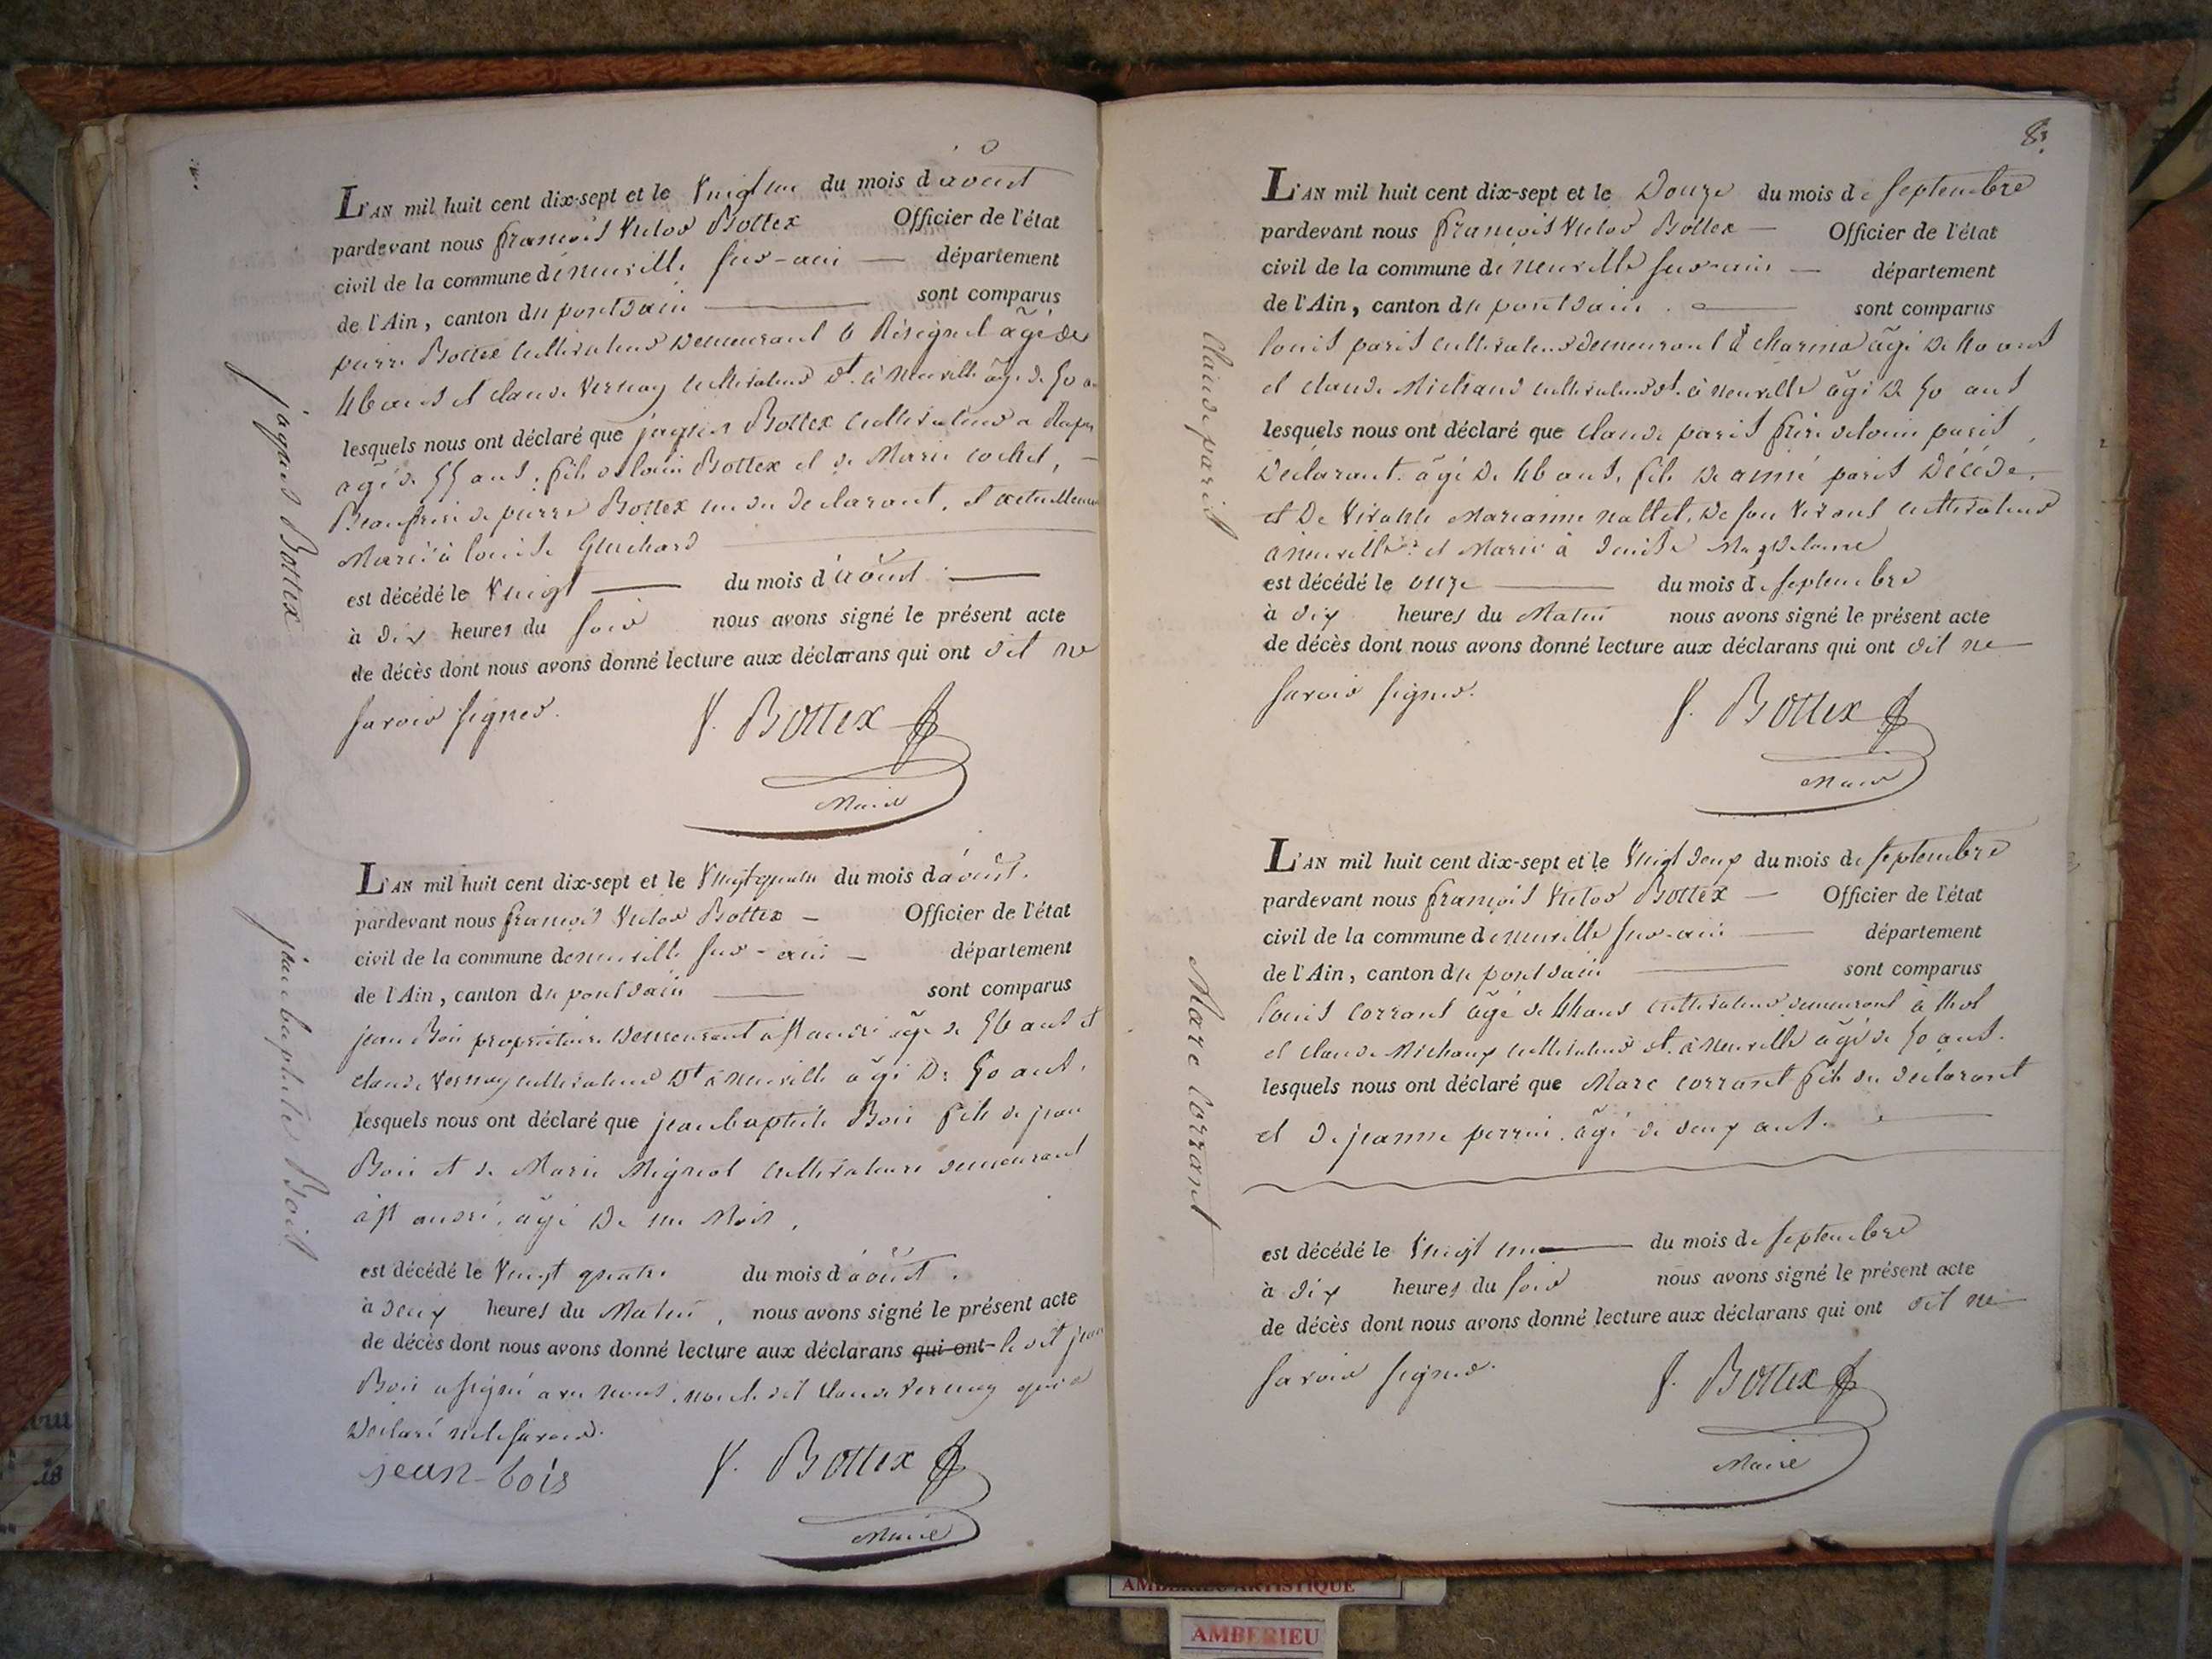 L'AN mil huit cent dix-sept et le Vingt un du mois d'août
pardevant nous françois Victor Bottex Officier de l'état
civil de la commune de neuville sur-ain département
de l'Ain, canton du pontdain sont comparus
pierre Bottex cultivateur demeurant à Résignel agé de
46 ans et claude Vernay cultivateur dt. à Neuville âgé de 50 a
lesquels nous ont déclaré que jâques Bottex cultivateur a
agé de 55 ans, fils de louis Bottex et de Marie cochet,
Beaufrere de pierre Bottex un du declarant, et actuellement
Marié à louise Guichard
est décédé le Vingt du mois d'août
à dix heures du soir nous avons signé le présent acte
de décès dont nous avons donné lecture aux déclarans qui ont dit ne
savoir signer.
f. Bottex
Maire
jâques Bottex
L'AN mil huit cent dix-sept et le Vingtquatre du mois d'août.
pardevant nous françois Victor Bottex Officier de l'état
civil de la commune de neuville sur-ain département
de l'Ain, canton du pontdain sont comparus
jean Bois propriétaire demeurant a st andré âgé de 56 ans et
claude Vernay cultivateur dt à Neuville âgé De 50 ans.
lesquels nous ont déclaré que jeanbaptiste Bois fils de jean
Bois et de Marie Mignot cultivateurs demeurant
à st andré, âgé De un Mois,
est décédé le Vingt quatre du mois d'août.
à deux heures du Matin, nous avons signé le présent acte
de décès dont nous avons donné lecture aux déclarans qui ont le dit jean
Bois a signé avec nous, non le dit claude Vernay qui a
déclaré ne le savoir.
jean-bois
f. Bottex
Maire
jean baptiste Bois
83
L'AN mil huit cent dix-sept et le Douze du mois de septembre
pardevant nous françois Victor Bottex Officier de l'état
civil de la commune de neuville sur-ain département
de l'Ain, canton du pontdain sont comparus
louis paris cultivateur demeurant à charina âgé de 40 ans
et claude Michaud cultivateur dt. à neuville âgé de 50 ans
lesquels nous ont déclaré que claude paris frere de louis paris,
déclarant. âgé De 46 ans, fils De aimé paris Décédé,
et De Marianne nallet, De son vivant cultivateur
à neuville: et Marié à
est décédé le onze du mois de septembre
à dix heures du Matin nous avons signé le présent acte
de décès dont nous avons donné lecture aux déclarans qui ont dit ne
savoir signer.
f. Bottex
Maire
claude paris
L'AN mil huit cent dix-sept et le Vingt deux du mois de septembre
pardevant nous françois Victor Bottex Officier de l'état
civil de la commune de neuville sur-ain département
de l'Ain, canton du pontdain sont comparus
louis corrant âgé de 44 ans cultivateur demeurant à thol
et claude Michaux cultivateur dt. à Neuville âgé de 50 ans.
lesquels nous ont déclaré que Marc corrant fils du declarant
et De jeanne perrin. âgé de deux ans.
est décédé le Vingt un du mois de septembre
à dix heures du soir nous avons signé le présent acte
de décès dont nous avons donné lecture aux déclarans qui ont dit ne
savoir signer.
f. Bottex
Maire
Marc Corrant
AMBERIEU ARTISTIQUE
AMBERIEU